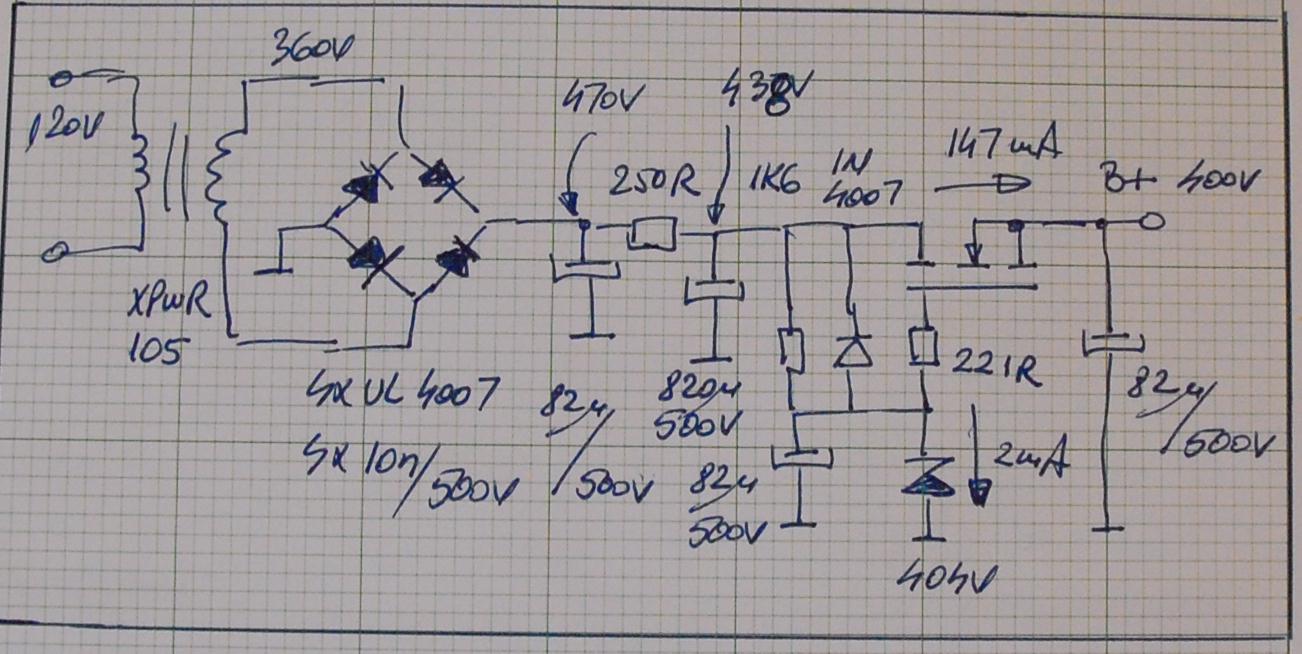 360V
120V
470V
438V
250R
1K6
1N
4007
147mA
B+ 400V
XPWR
105
4x UL 4007
4x 10n/500V
82µ/500V
820µ
500V
82µ
500V
221R
2mA
404V
82µ/500V